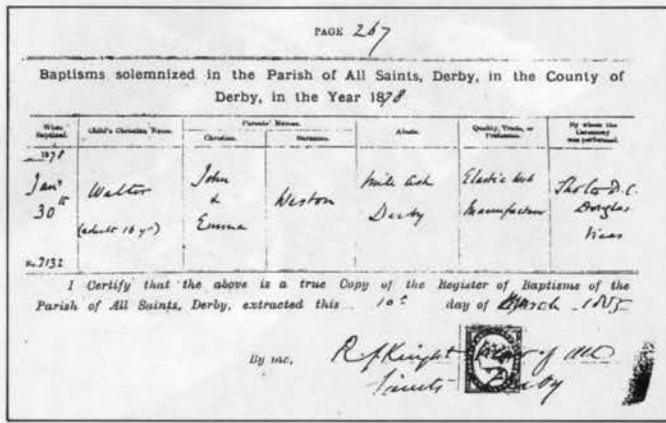 PAGE 267
Baptisms solemnized in the Parish of All Saints, Derby, in the County of
Derby, in the Year 1878
When Baptized.
Child's Christian Name.
Parents' Names.
Christian.
Surname.
Abode.
Quality, Trade, or Profession.
By whom the Ceremony was performed.
1878
Jany 30th
Walter
(adult 16 yrs)
John
&
Emma
Weston
Mile Ash
Derby
Elastic Web
Manufacturer
Douglas
Vicar
No. 7132
I Certify that the above is a true Copy of the Register of Baptisms of the
Parish of All Saints, Derby, extracted this 10th day of March 1885
By me, Knight Vicar of All
Saints Derby